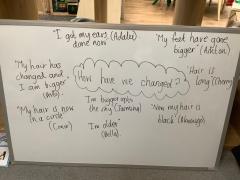 "I got my ears
done now (Adalai)
"My feet have gone
bigger" (Ashton)
"My hair has
changed and
I am bigger"
How have we changed?
"Hair is
long" (Cherry)
"My hair is now
in a circle"
I'm bigger upto
the sky
"Now my hair is
black"
"Im older"